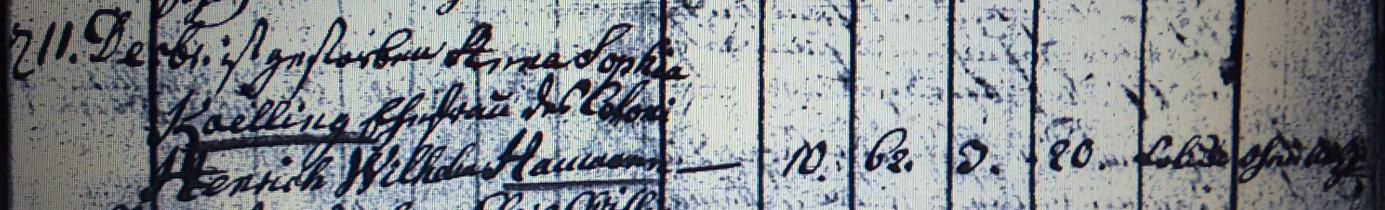 211. Decbr. ist gestorben Anna Sophia
Kaelling Ehefrau des Coloni
Henrich Wilhelm Hamann — 10. 62. 9. 20.